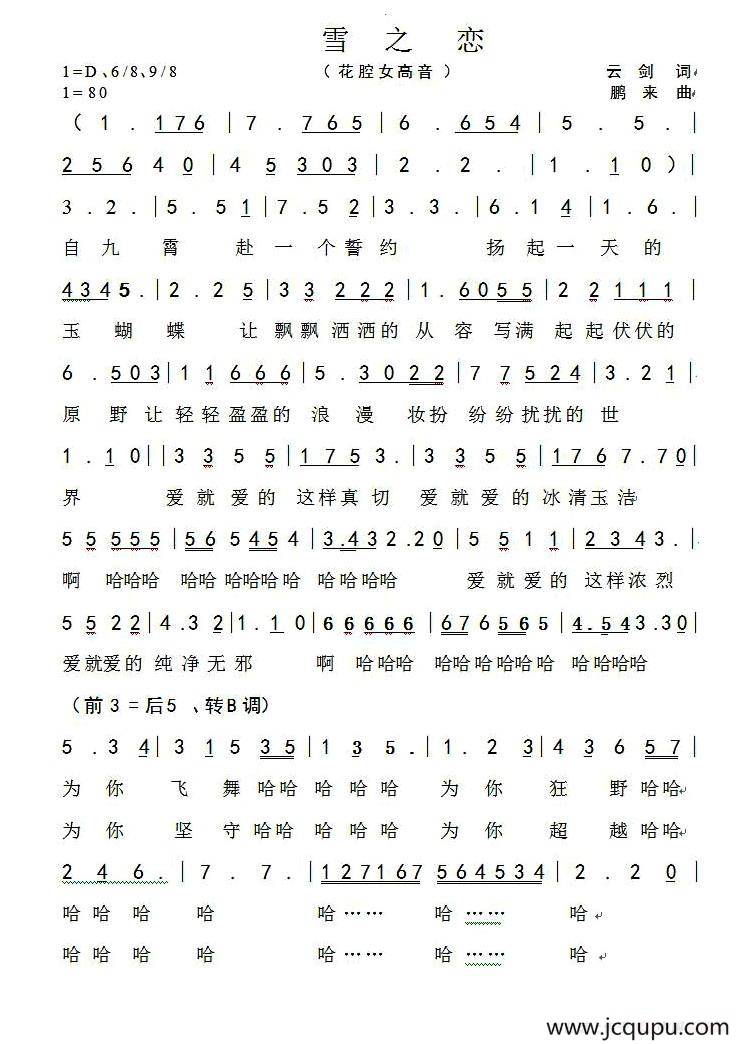 雪 之 恋
1=D、6/8、9/8 （花腔女高音） 云 剑 词
1=80 鹏 来 曲
（ 1 . 176 | 7 . 765 | 6 . 654 | 5 . 5 . |
25640 | 45 303 | 2 . 2 . | 1 . 10 ）|
3 . 2 . | 5 . 51 | 7 . 52 | 3 . 3 . | 6 . 14 | 1 . 6 . |
自 九 霄 赴 一 个 誓 约 扬 起 一 天 的
4345 . | 2 . 25 | 33 222 | 1 . 6055 | 22111 |
玉 蝴 蝶 让 飘飘 洒洒的 从 容 写满 起起伏伏的
6 . 503 | 11666 | 5 . 3022 | 77524 | 3 . 21 |
原 野 让 轻轻盈盈的 浪 漫 妆扮 纷纷扰扰的 世
1 . 10 | | 3355 | 1753 . | 3355 | 1767.70 |
界 爱就爱的 这样真切 爱就爱的冰清玉洁
55555 | 565454 | 3.432.20 | 5511 | 2343 . |
啊 哈哈哈 哈哈哈哈哈哈 哈哈哈哈 爱就爱的 这样浓烈
5522 | 4 . 32 | 1 . 10 | 66666 | 676565 | 4.543.30 |
爱就爱的 纯净无邪 啊 哈哈哈 哈哈哈哈哈哈 哈哈哈哈
（前3=后5 、转B调）
5 . 34 | 31535 | 1 3 5 . | 1 . 23 | 43657 |
为 你 飞 舞 哈哈 哈 哈哈 为 你 狂 野 哈哈
为 你 坚 守 哈哈 哈 哈哈 为 你 超 越 哈哈
2 4 6 . | 7 . 7 . | 127167 564534 | 2 . 20 |
哈 哈 哈 哈 哈…… 哈…… 哈
哈 哈 哈 哈 哈…… 哈…… 哈
www.jcqupu.com